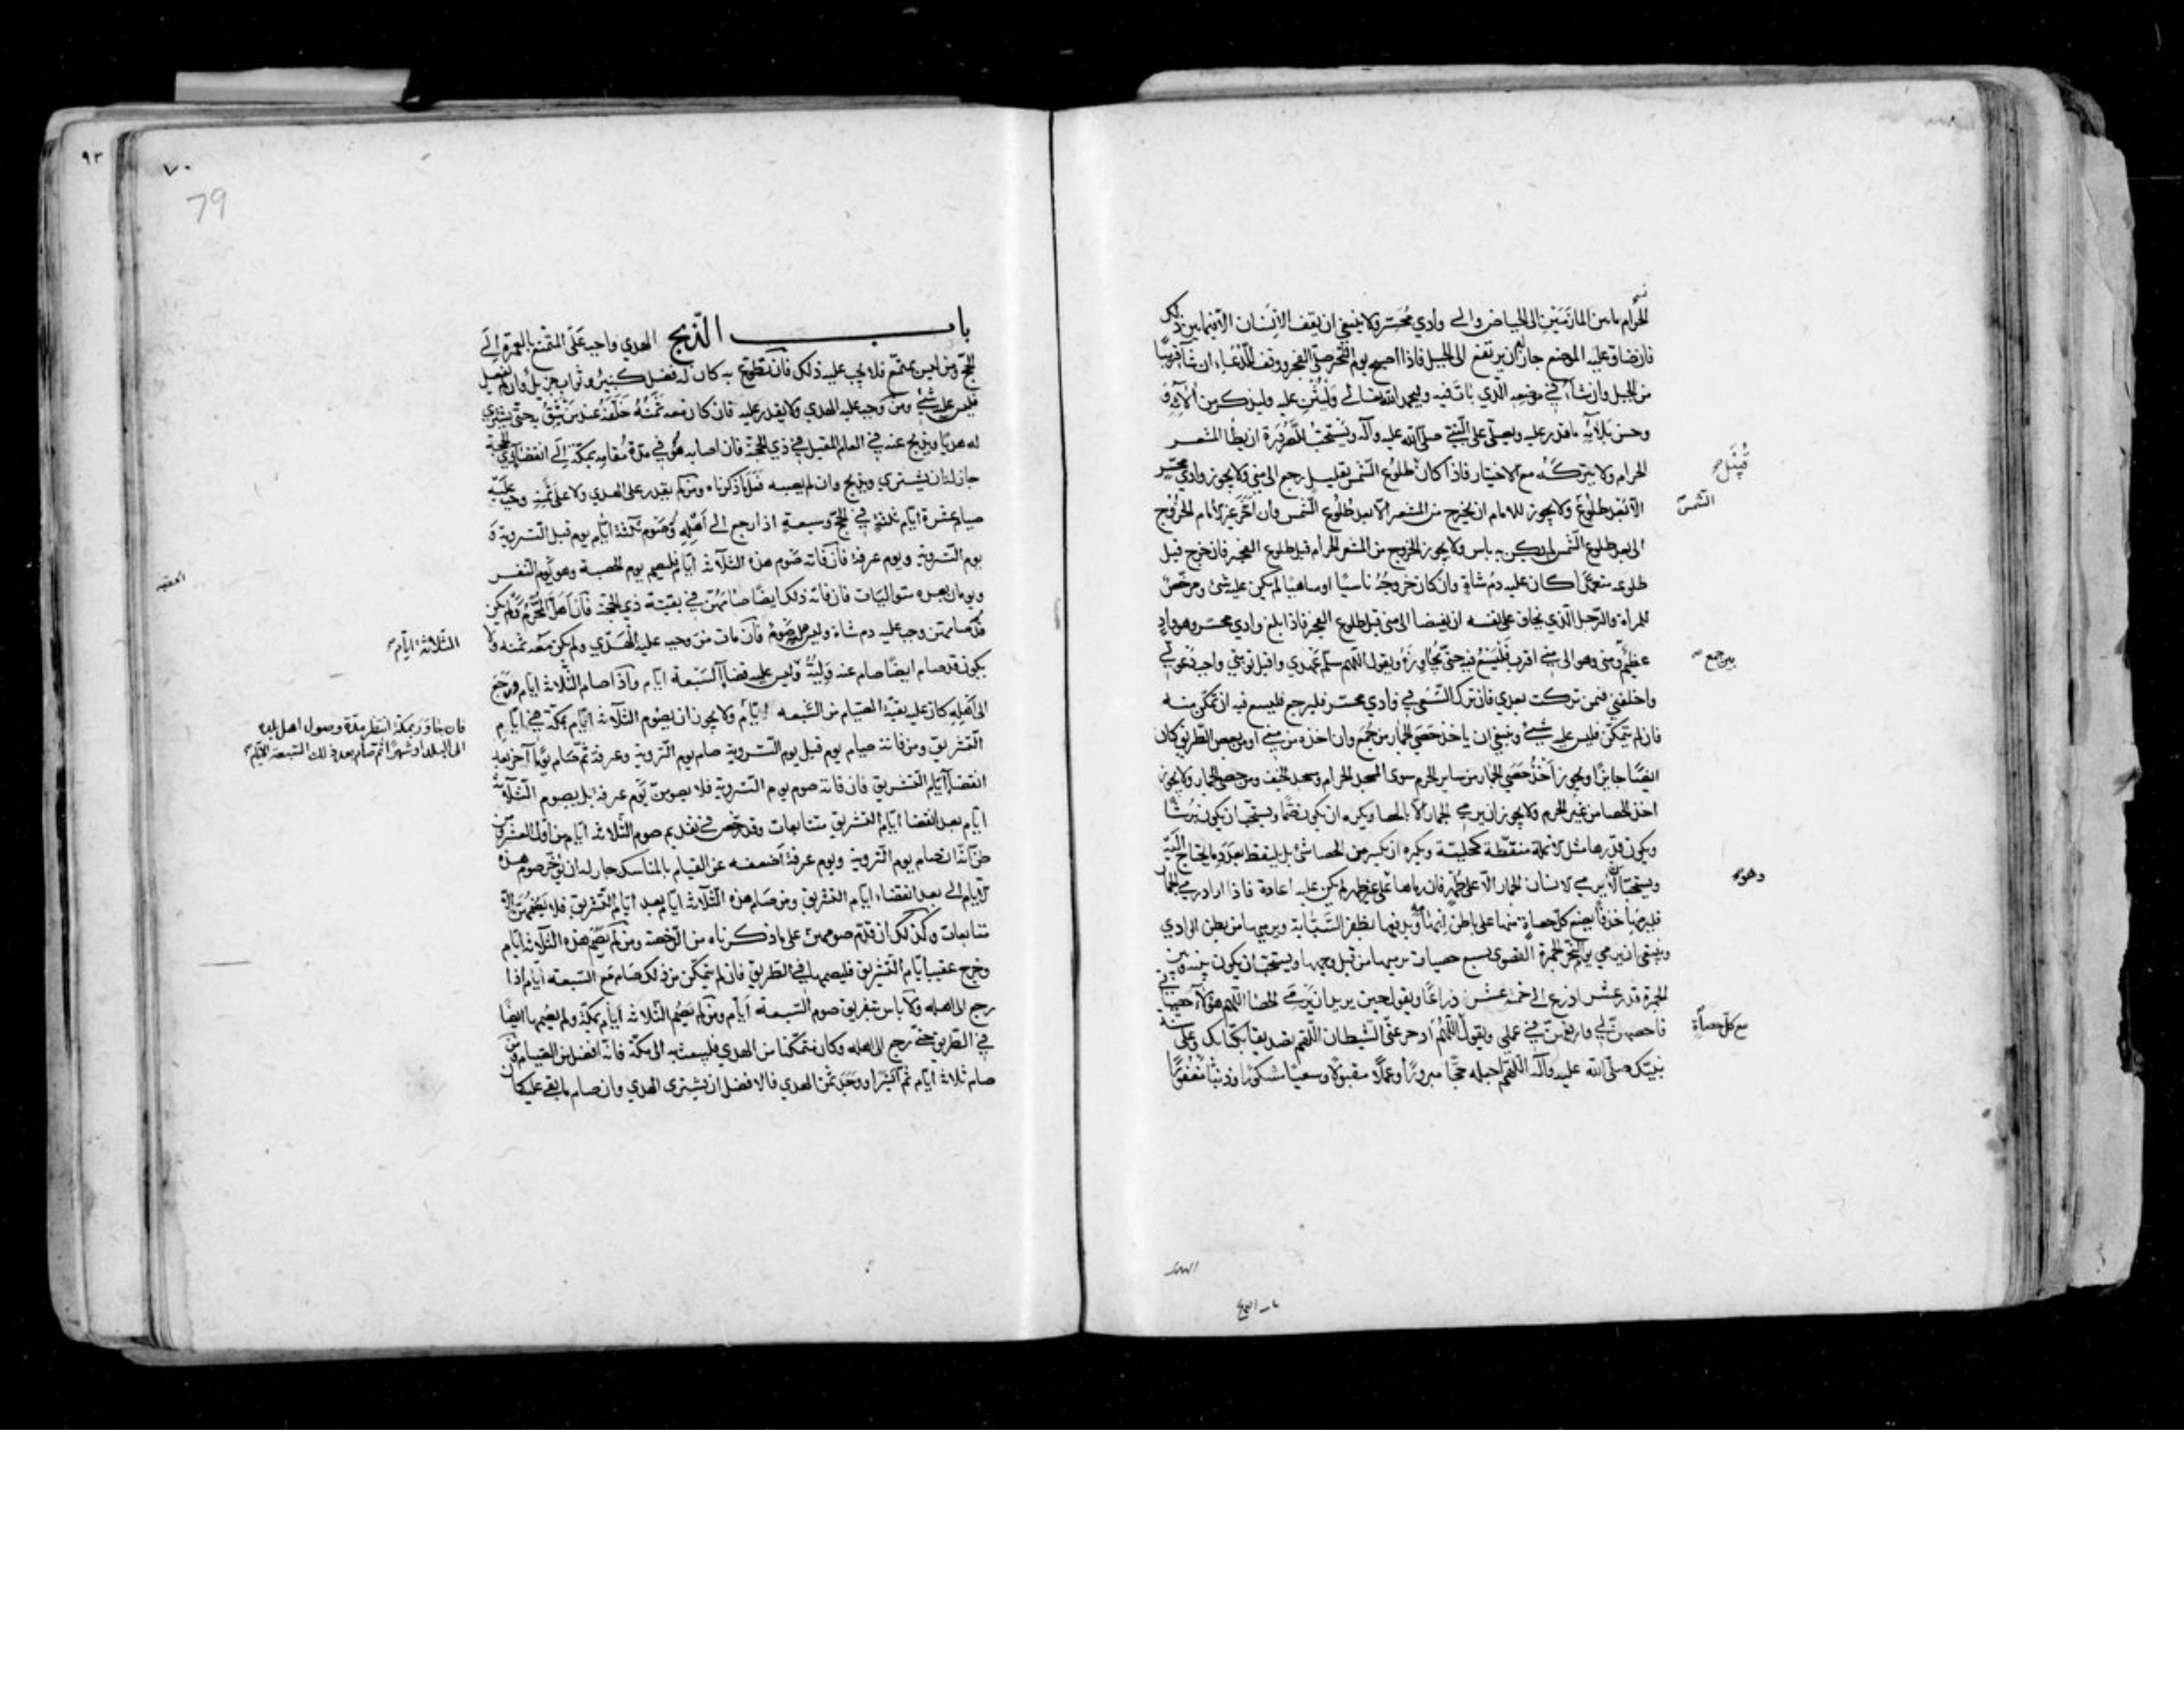 الحرام ما بين المأزمين الى الحياض والى وادي محسر ولا ينبغي ان يقف الانسان الا فيما بين ذلك
فان ضاق عليه الموضع جاز ان يرتفع الى الجبل فاذا اصبح يوم النحر صلى الفجر ووقف للدعاء ان شاء قريبا
من الجبل وان شاء في موضعه الذي بات فيه وليحمد الله تعالى وليثن عليه وليذكر من آلائه و
وحسن بلائه ما قدر عليه ويصلي على النبي صلى الله عليه وآله ويستحب للصرورة ان يطأ المشعر
الحرام ولا يتركه مع الاختيار فاذا كان طلوع الشمس بقليل رجع الى منى ولا يجوز وادي محسر
قبل
الا بعد طلوع ولا يجوز للامام ان يخرج من المشعر الا بعد طلوع الشمس وان اخر غير الامام الخروج
الشمس
الى بعد طلوع الشمس لم يكن به باس ولا يجوز الخروج من المشعر الحرام قبل طلوع الفجر فان خرج قبل
طلوعه متعمدا كان عليه دم شاة وان كان خروجه ناسيا او ساهيا لم يكن عليه شئ ومرخص
للمراة والرجل الذي يخاف على نفسه ان يفيضا الى منى قبل طلوع الفجر فاذا بلغ وادي محسر وهو واد
عظيم ومنى وهو الى منى اقرب فليسع فيه حتى يجاوزه ويقول اللهم سلم عهدي واقبل توبتي واجب دعوتي
بين جمع
واخلفني فيمن تركت بعدي فان ترك السعي في وادي محسر فليرجع فليسع فيه ان تمكن منه
فان لم يتمكن فليس عليه شئ وينبغي ان ياخذ حصى الجمار من جمع وان اخذه من منى او من بعض الطريق كان
ايضا جايزا ويجوز اخذ حصى الجمار من ساير الحرم سوى المسجد الحرام ومسجد الخيف ومن حصى الجمار ولا يجوز
اخذ الحصا من غير الحرم ولا يجوز ان يرمي الجمار الا بالحصا ويكره ان يكون صما ويستحب ان يكون برشا
ويكون قدرها مثل الانملة منقطة كحلية ويكره ان يكسر من الحصا شئ بل يلتقط بعدد ما يحتاج اليه
ويستحب الا يرمي الانسان الجمار الا على طهر فان رماها على غير طهر لم يكن عليه اعادة فاذا اراد رمي الجمار
وهو
فليرمها خذفا يضع كل حصاة منها على باطن ابهامه ويدفعها بظفر السبابة ويرميها من بطن الوادي
وينبغي ان يرمي يوم النحر الجمرة القصوى بسبع حصيات يرميها من قبل وجهها ويستحب ان يكون بينه وبين
الجمرة قدر عشر اذرع الى خمسة عشر ذراعا ويقول حين يريد ان يرمي الحصا اللهم هؤلاء حصياتي
فاحصهن لي وارفعهن في عملي ويقول اللهم ادحر عني الشيطان اللهم تصديقا بكتابك وعلى سنة
مع كل حصاة
نبيك صلى الله عليه وآله اللهم اجعله حجا مبرورا وعملا مقبولا وسعيا مشكورا وذنبا مغفورا
٩٣
٧٠
79
باب الذبح الهدي واجب على المتمتع بالعمرة الى
الحج ومن ليس بمتمتع فلا يجب عليه ذلك فان تطوع به كان له فضل كثير وثواب جزيل وان لم يفعل
فليس عليه شئ ومن وجب عليه الهدي ولا يقدر عليه فان كان معه ثمنه خلفه عند من يثق به حتى يشتري
له هديا ويذبح عنه في العام المقبل في ذي الحجة فان اصابه هو في مدة مقامه بمكة الى انقضاء ذي الحجة
جاز له ان يشتري ويذبح وان لم يصبه فعل ما ذكرناه ومن لم يقدر على الهدي ولا على ثمنه وجب عليه
صيام عشرة ايام ثلثة في الحج وسبعة اذا رجع الى اهله وصوم ثلثة ايام يوم قبل التروية و
يوم التروية ويوم عرفة فان فاته صوم هذه الثلاثة ايام فليصم يوم الحصبة وهو يوم النفر
ويومان بعده متواليات فان فاته ذلك ايضا صامهن في بقية ذي الحجة فان اهل المحرم ولم يكن
قد صامهن وجب عليه دم شاة وليس عليه صوم فان مات من وجب عليه الهدي ولم يكن معه ثمنه ولا
الثلاثة ايام
يكون قد صام ايضا صام عنه وليه وليس عليه قضاء السبعة ايام واذا صام الثلاثة ايام ورجع
الى اهله كان عليه بقية الصيام من السبعة ايام ولا يجوز ان يصوم الثلاثة ايام بمكة في ايام
فان جاور بمكة انتظر مدة وصول اهل بلده
الى البلد او شهرا ثم صام بعد ذلك السبعة الايام
التشريق ومن فاته صيام يوم قبل يوم التروية صام يوم التروية وعرفة ثم صام يوما آخر بعد
انقضاء ايام التشريق فان فاته صوم يوم التروية فلا يصومن يوم عرفة بل يصوم الثلاثة
ايام بعد انقضاء ايام التشريق متتابعات وقد رخص في تقديم صوم الثلاثة ايام من اول العشر ومن
ظن انه ان صام يوم التروية ويوم عرفة اضعفه عن القيام بالمناسك جاز له ان يؤخر صوم هذه
الايام الى بعد انقضاء ايام التشريق ومن صام هذه الثلاثة ايام بعد ايام التشريق فلا يصمهن الا
متتابعات وكذلك ان قدم صومهن على ما ذكرناه من الرخصة ومن لم يصم هذه الثلاثة ايام
وخرج عقيب ايام التشريق فليصمها في الطريق فان لم يتمكن من ذلك صام مع السبعة ايام اذا
رجع الى اهله ولا باس بتفريق صوم السبعة ايام ومن لم يصم الثلاثة ايام بمكة ولم يصمها ايضا
في الطريق حتى رجع الى اهله وكان متمكنا من الهدي فليبعث به الى مكة فانه افضل من الصيام ومن
صام ثلاثة ايام ثم ايسر او وجد ثمن الهدي فالافضل ان يشتري الهدي وان صام ما بقي عليه كان